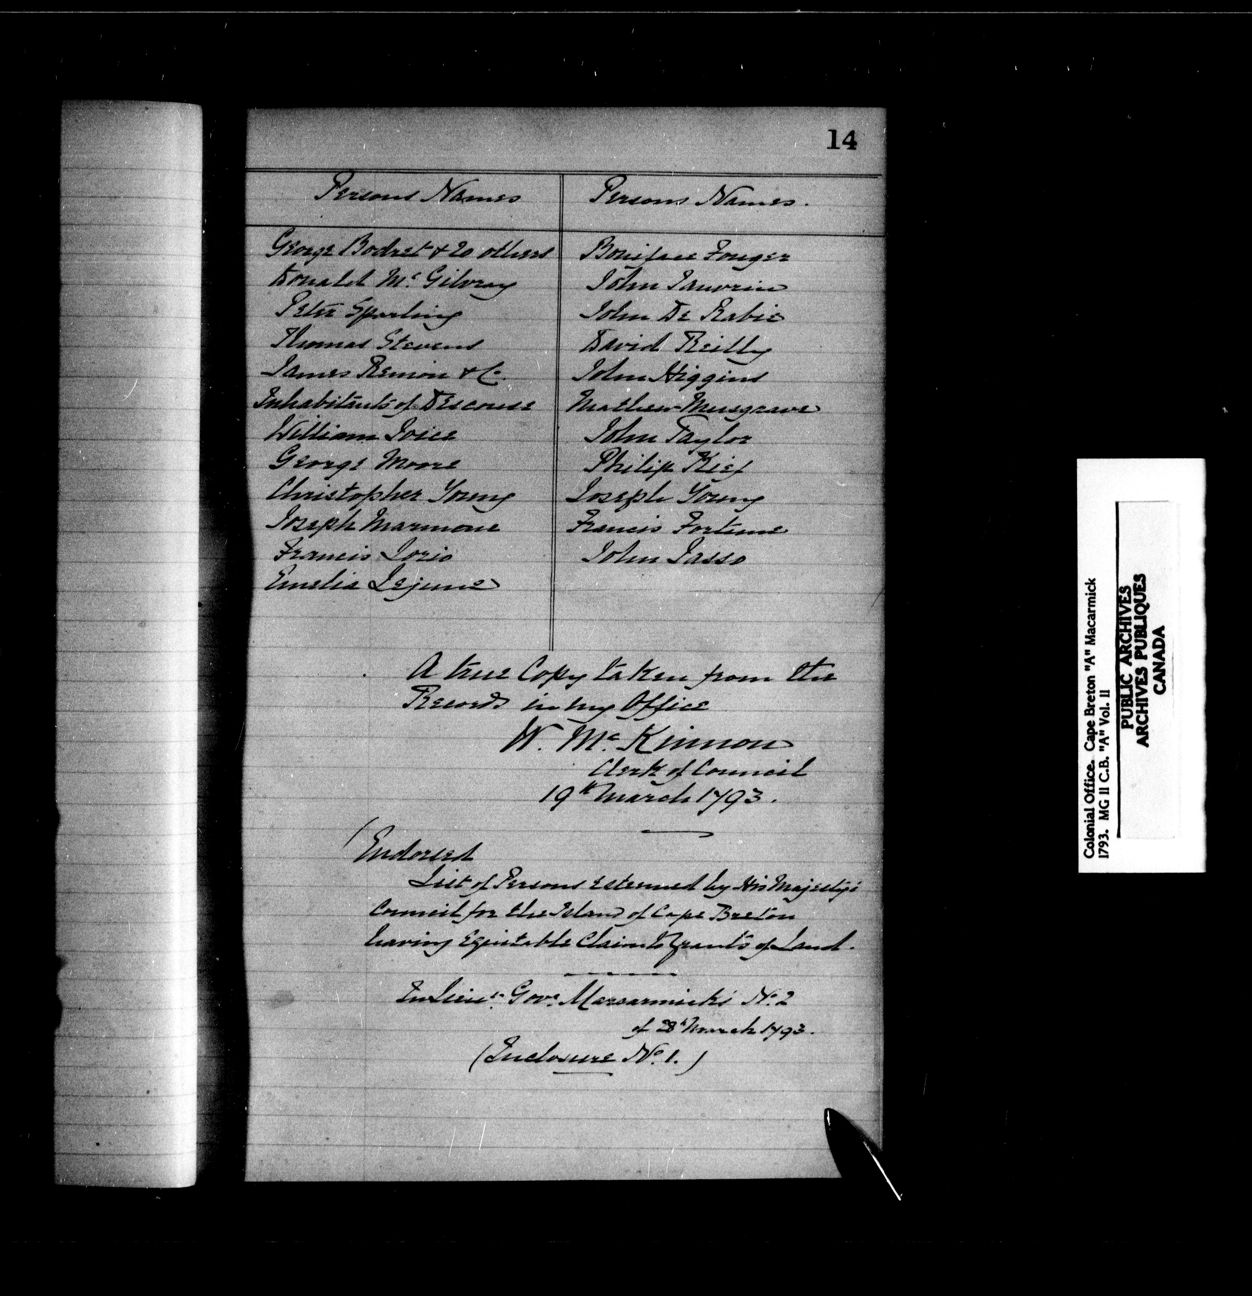 14
Persons Names
George Bodret & 20 others
Donald Mc Gilvray
Peter Sparling
Thomas Stevens
James Remon & Co.
Inhabitants of Descouse
William Joice
George Moore
Christopher Young
Joseph Marmone
Francis Lorio
Emelia Lejune
Persons Names.
Boniface Fouger
John
John De Rabie
David Reilly
John Higgins
Mathew Musgrave
John Taylor
Philip Kief
Joseph Young
Francis Fortune
John Jasso
A true Copy taken from the
Records in my Office
W. Mc Kinnon
Clerk of Council
19th March 1793.
(Endorsed
List of Persons esteemed by His Majesty's
Council for the Island of Cape Breton
having Equitable Claim to Grants of Land.
In Lieut. Govr. Macarmick's No. 2
of 28th March 1793.
(Enclosure No. 1.)
Colonial Office. Cape Breton "A" Macarmick
1793. MG 11 C.B. "A" Vol. 11
PUBLIC ARCHIVES
ARCHIVES PUBLIQUES
CANADA